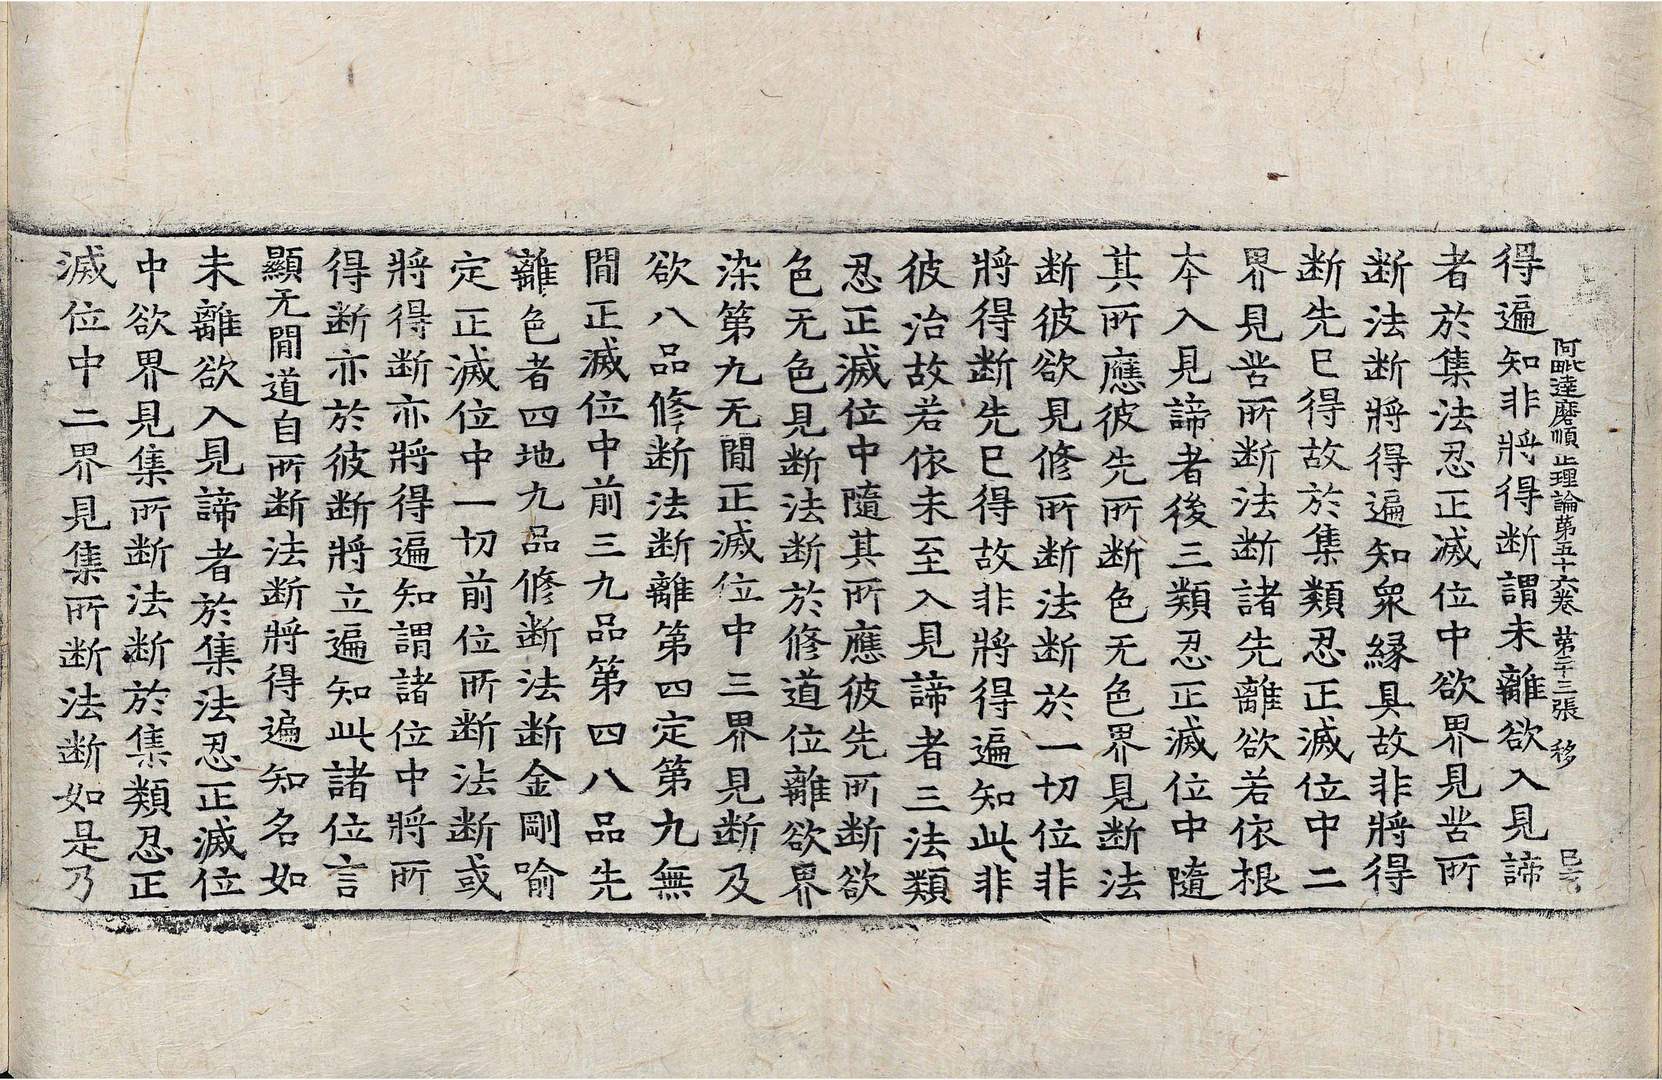 阿毗達磨順正理論第五十六卷 第二十三張 移
得遍知非將得断謂未離欲入見諦
者於集法忍正滅位中欲界見苦所
断法断將得遍知衆縁具故非將得
断先已得故於集類忍正滅位中二
界見苦所断法断諸先離欲若依根
本入見諦者後三類忍正滅位中隨
其所應彼先所断色无色界見断法
断彼欲見修所断法断於一切位非
將得断先已得故非將得遍知此非
彼治故若依未至入見諦者三法類
忍正滅位中隨其所應彼先所断欲
色无色見断法断於修道位離欲界
染第九无間正滅位中三界見断及
欲八品修断法断離第四定第九無
間正滅位中前三九品第四八品先
離色者四地九品修断法断金剛喻
定正滅位中一切前位所断法断或
將得断亦將得遍知謂諸位中將所
得断亦於彼断將立遍知此諸位言
顯无間道自所断法断將得遍知名如
未離欲入見諦者於集法忍正滅位
中欲界見集所断法断於集類忍正
滅位中二界見集所断法断如是乃